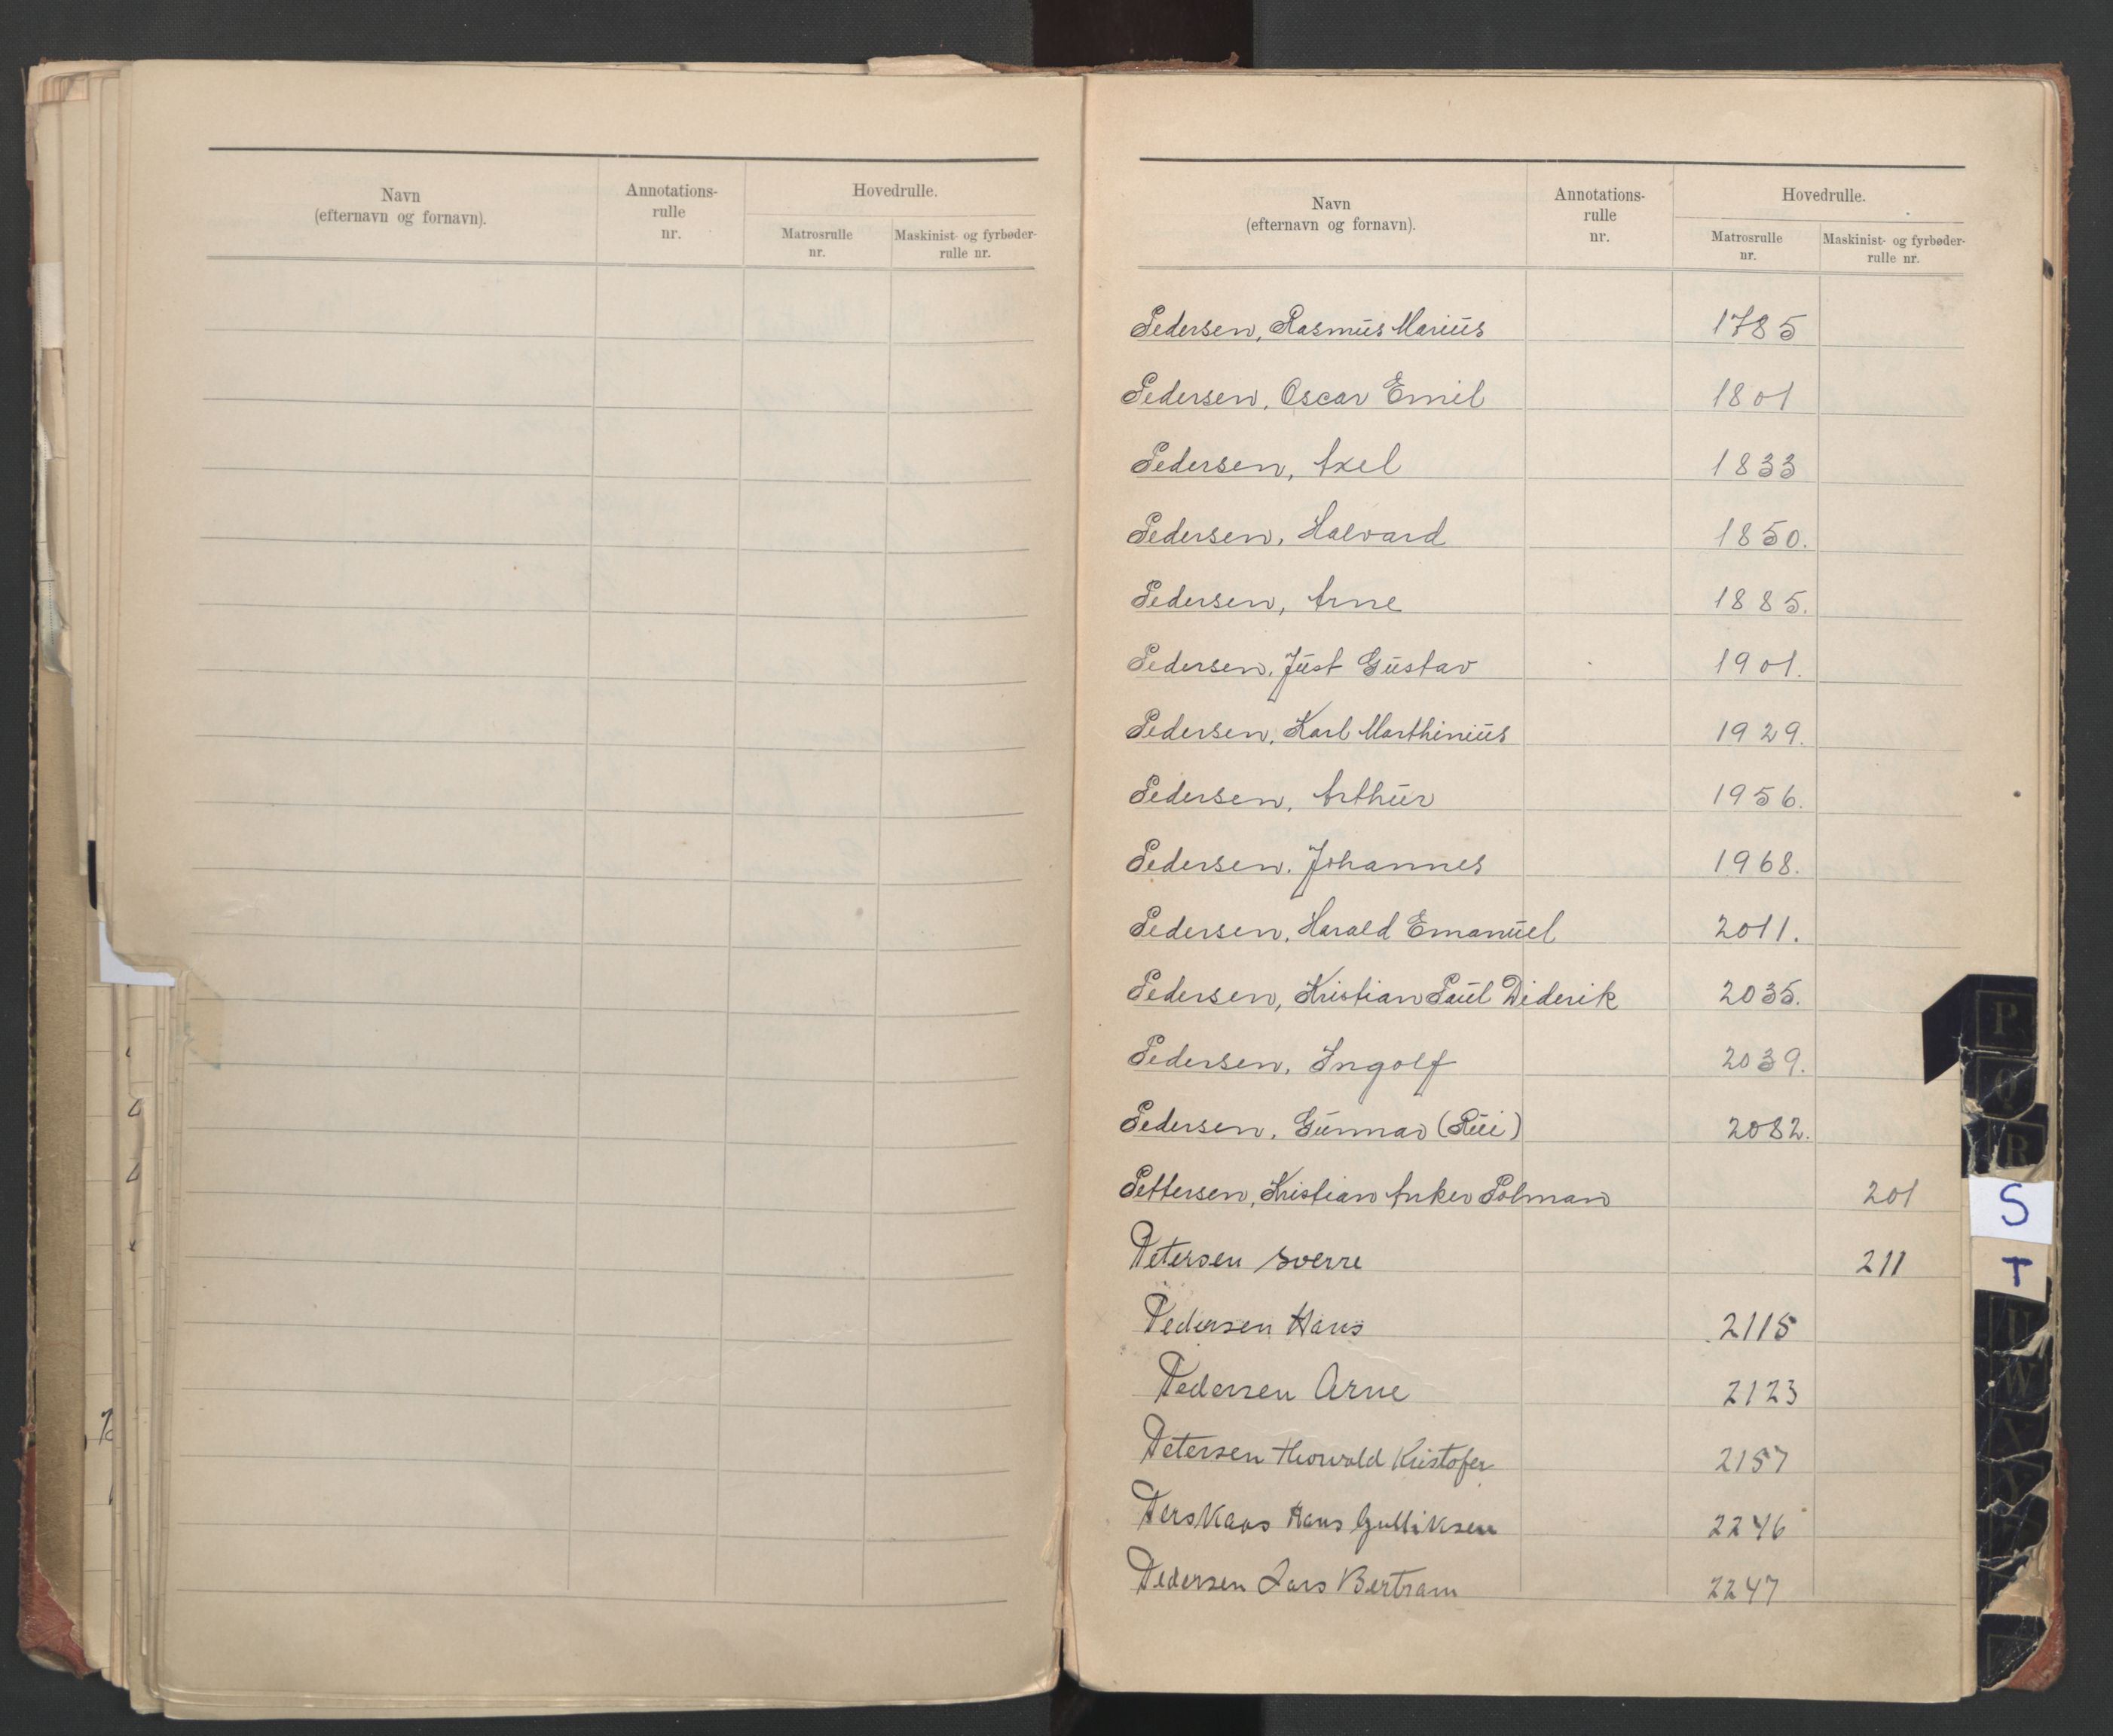 Navn
(efternavn og fornavn).
Annotations-
rulle
nr.
Hovedrulle.
Matrosrulle
nr.
Maskinist- og fyrbøder-
rulle nr.
Navn
(efternavn og fornavn).
Annotations-
rulle
nr.
Hovedrulle.
Matrosrulle
nr.
Maskinist- og fyrbøder-
rulle nr.
Pedersen, Rasmus Marius 1785
Pedersen, Oscar Emil 1801
Pedersen, Axel 1833
Pedersen, Halvard 1850.
Pedersen, Arne 1885.
Pedersen, Just Gustav 1901.
Pedersen, Karl Marthinius 1929.
Pedersen, Arthur 1956.
Pedersen, Johannes 1968.
Pedersen, Harald Emanuel 2011.
Pedersen, Kristian Paul Diderik 2035.
Pedersen, Ingolf 2039.
Pedersen, Gunnar (Rui) 2082.
Pettersen, Kristian Anker Polman 201
Petersen Sverre 211
Pedersen Hans 2115
Pedersen Arne 2123
Petersen Thorvald Kristofer 2157
Perskaas Hans Gulliksen 2246
Pedersen Lars Bertram 2247
P
Q
R
S
T
U
W
X
Y